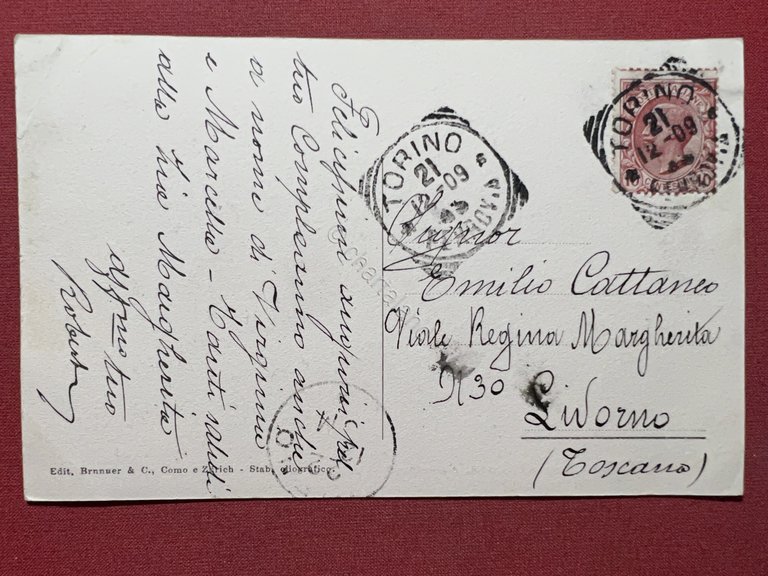 Felicissimi auguri pel
tuo Compleanno anche
a nome di Virginia
e Marcella - Tanti saluti
alla Zia Margherita
aff.mo tuo
Robert
TORINO
21
12-09
TORINO
21
12-09
Signor
Emilio Cattaneo
Viale Regina Margherita
N 30
Livorno
(Toscana)
Edit. Brunner & C., Como e Zürich - Stab. eliografico.